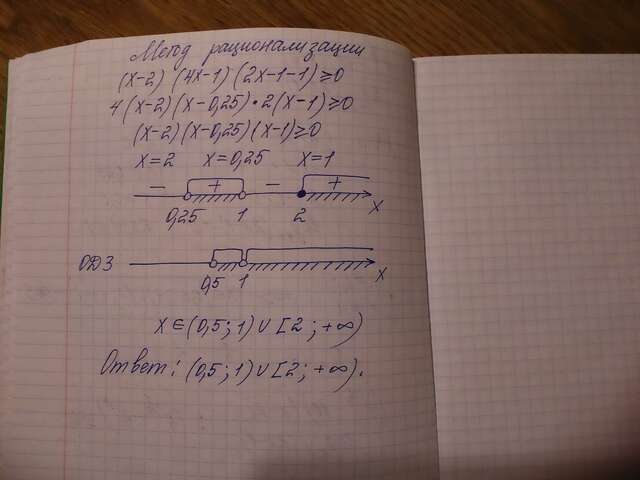 Метод рационализации
(x-2) (4x-1) (2x-1-1)≥0
4(x-2)(x-0,25)•2(x-1)≥0
(x-2)(x-0,25)(x-1)≥0
x=2 x=0,25 x=1
- + - +
0,25 1 2 x
ОДЗ
0,5 1 x
x∈(0,5;1)∪[2;+∞)
Ответ: (0,5;1)∪[2;+∞).